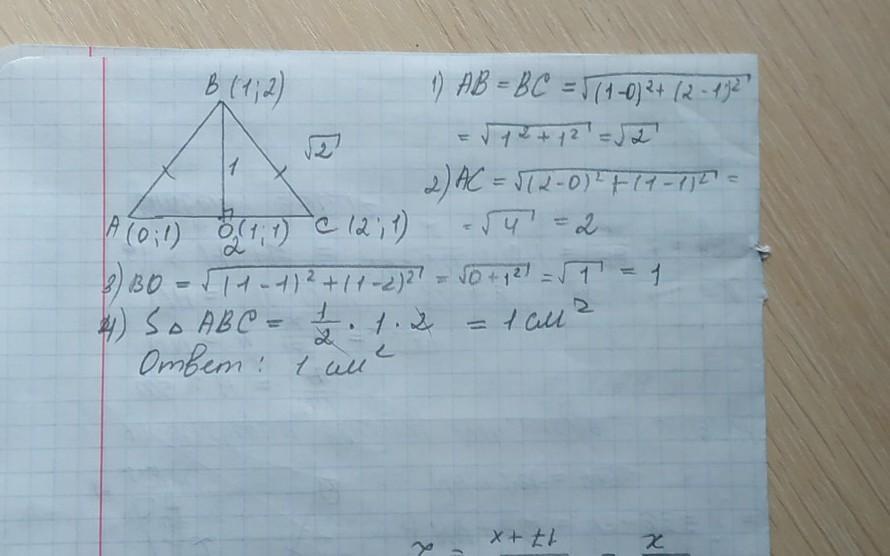 B (1;2)
√2
1
A (0;1) O (1;1) C (2;1)
2
1) AB = BC = √(1-0)² + (2-1)²
= √1² + 1² = √2
2) AC = √(2-0)² + (1-1)² =
= √4 = 2
3) BO = √(1-1)² + (1-2)² = √0+1² = √1 = 1
4) S △ ABC = 1/2 · 1 · 2 = 1 см²
Ответ : 1 см²